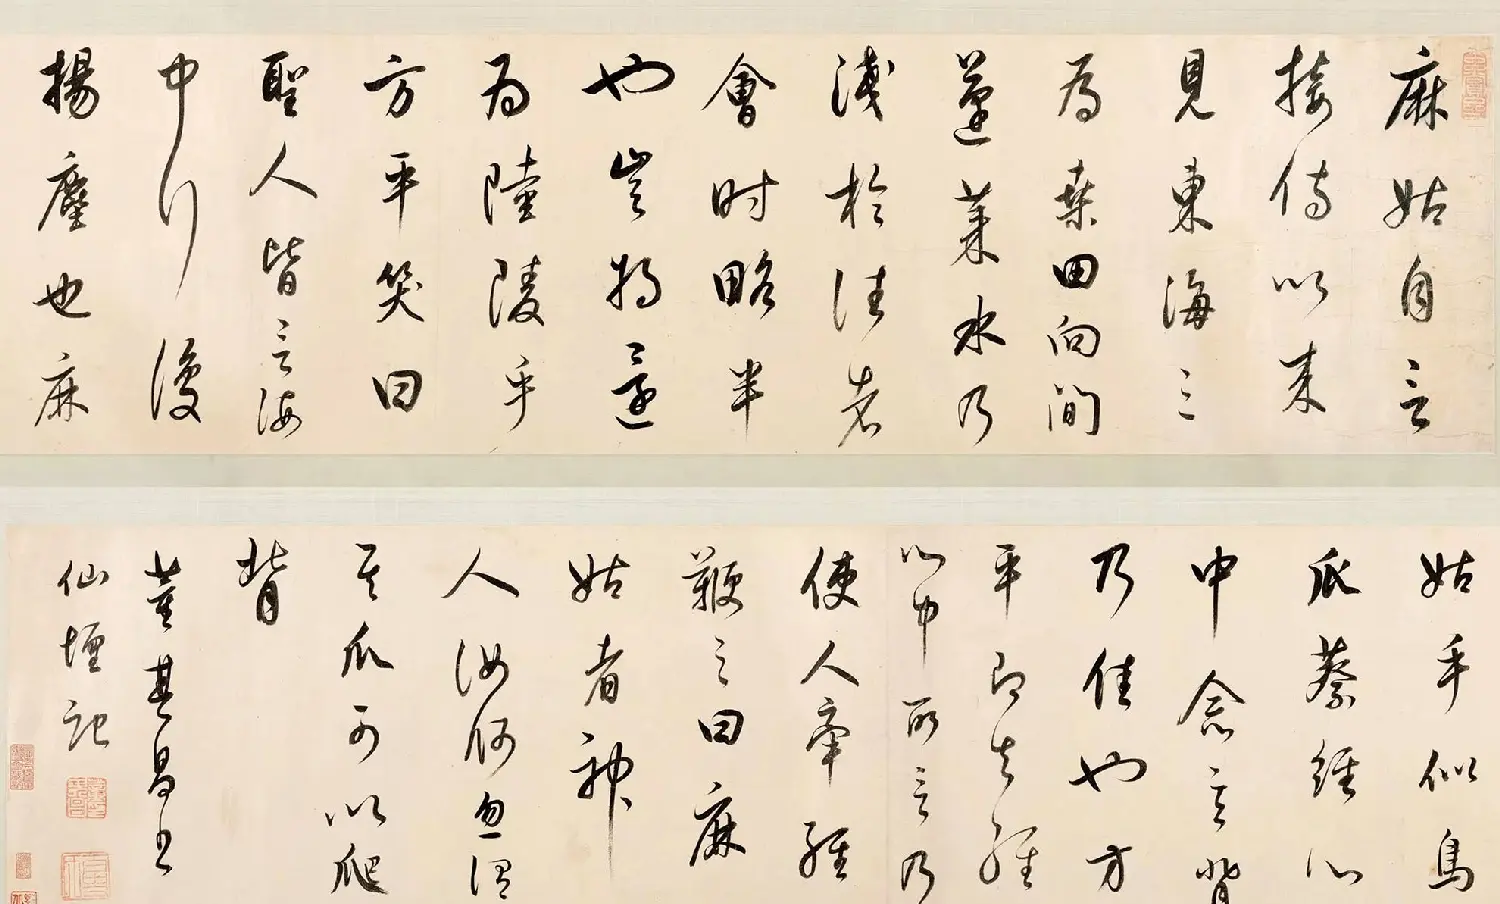 麻姑自言
接侍以来
見東海三
為桒田向間
蓬莱水乃
淺於往者
會时略半
也豈将還
為陸陵乎
方平笑曰
聖人皆言海
中行復
揚塵也麻
姑手似鳥
爪蔡經心
中念言背
乃佳也方
平即知經
心中所言乃
使人牽經
鞭之曰麻
姑者神
人汝何忽謂
其爪可以爬
背
董其昌書
仙壇記